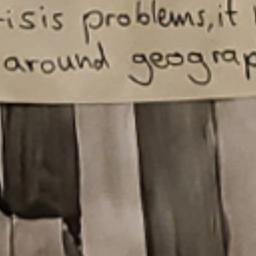 -isis problems, it
around geograp